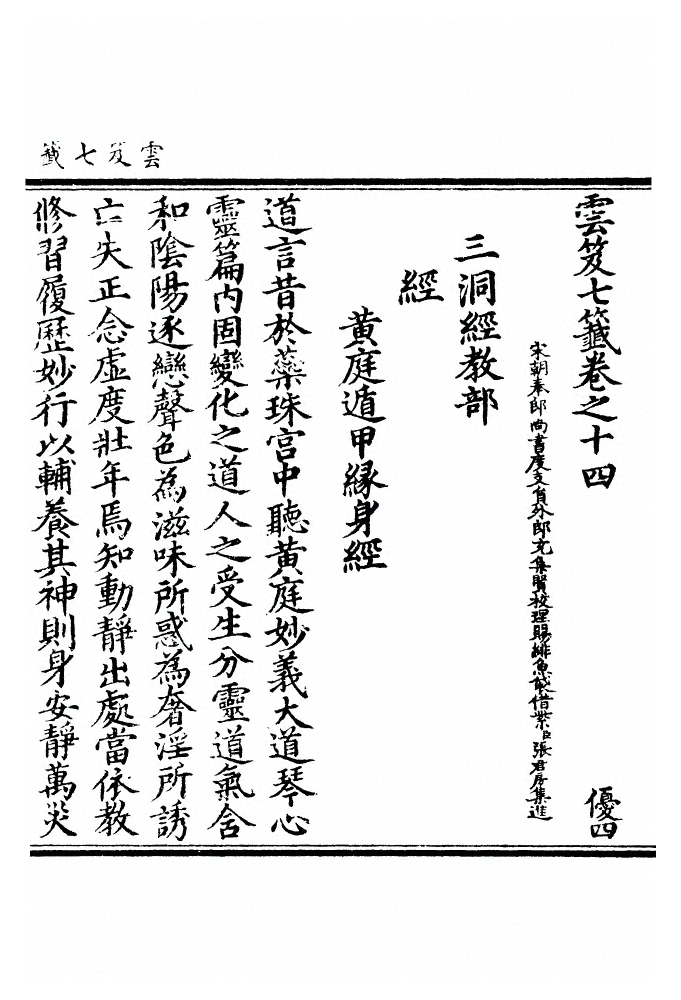 雲笈七籤
雲笈七籤卷之十四
優四
宋朝奉郎尚書度支員外郎充集賢校理賜緋魚袋借紫臣張君房集進
三洞經教部
經
黃庭遁甲緣身經
道言昔於蘂珠宮中聽黃庭妙義大道琴心
靈篇內固變化之道人之受生分靈道氣含
和陰陽逐戀聲色為滋味所惑為奢淫所誘
亡失正念虛度壯年焉知動靜出處當依教
修習履歷妙行以輔養其神則身安靜萬災